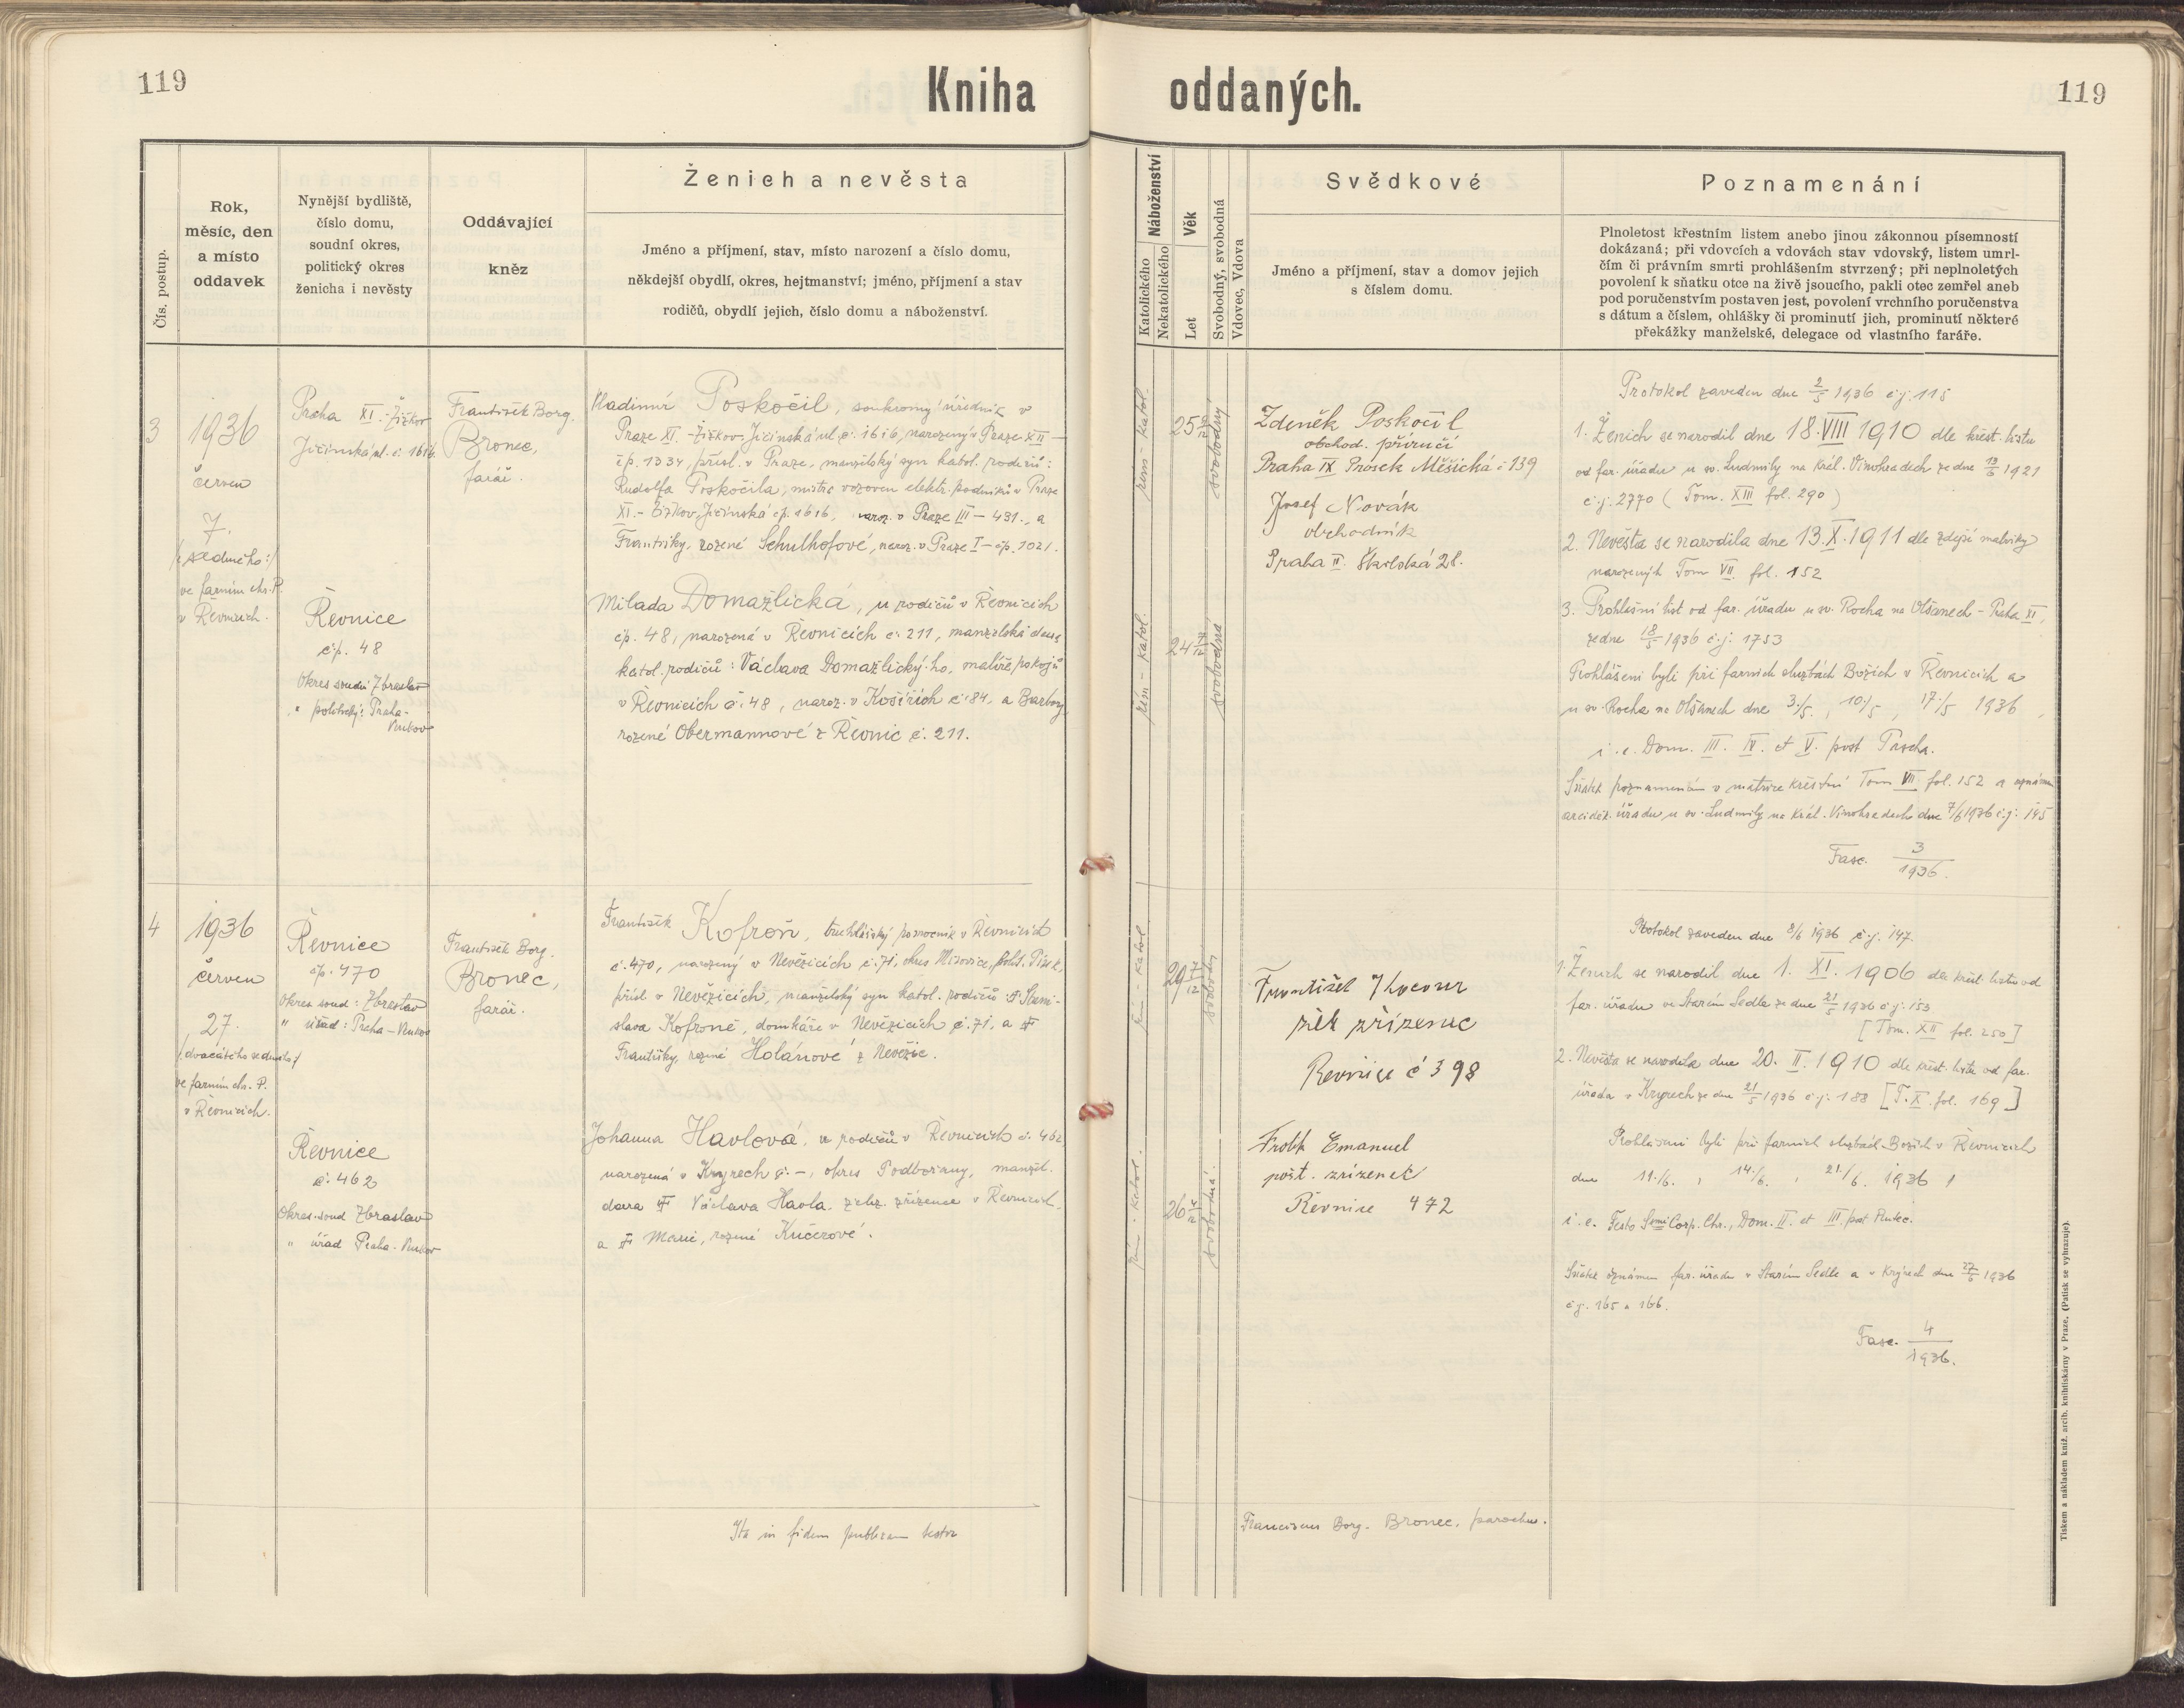 119
Kniha oddaných.
119
Čís. postup.
Rok,
měsíc, den
a místo
oddavek
Nynější bydliště,
číslo domu,
soudní okres,
politický okres
ženicha i nevěsty
Oddávající
kněz
Ženich a nevěsta
Jméno a příjmení, stav, místo narození a číslo domu,
někdejší obydlí, okres, hejtmanství; jméno, příjmení a stav
rodičů, obydlí jejich, číslo domu a náboženství.
Náboženství
Katolického
Nekatolického
Věk
Let
Svobodný, svobodná
Vdovec, Vdova
Svědkové
Jméno a příjmení, stav a domov jejich
s číslem domu.
Poznamenání
Plnoletost křestním listem anebo jinou zákonnou písemností
dokázaná; při vdovcích a vdovách stav vdovský, listem umrl-
čím či právním smrti prohlášením stvrzený; při neplnoletých
povolení k sňatku otce na živě jsoucího, pakli otec zemřel aneb
pod poručenstvím postaven jest, povolení vrchního poručenstva
s dátum a číslem, ohlášky či prominutí jich, prominutí některé
překážky manželské, delegace od vlastního faráře.
3
1936
červen
7.
/: sedmého :/
ve farním chr. P.
v Řevnicích.
Praha XI. - Žižkov
Jičínská ul. č. 1616.
Řevnice
čp. 48
Okres soudní Zbraslav
" politický: Praha-
venkov
František Borg.
Bronec,
farář.
Vladimír Poskočil, soukromý úředník v
Praze XI. - Žižkov, Jičínská ul. č. 1616, narozený v Praze XII -
čp. 1334, přísl. v Praze, manželský syn katol. rodičů:
Rudolfa Poskočila, mistra vozoven elektr. podniků v Praze
XI. - Žižkov, Jičínská čp. 1616, naroz. v Praze III - 431., a
Františky, rozené Schulhofové, naroz. v Praze I - čp. 1021.
Milada Domažlická, u rodičů v Řevnicích
čp. 48, narozená v Řevnicích č. 211, manželská dcera
katol. rodičů: Václava Domažlického, malíře pokojů
v Řevnicích č. 48, naroz. v Košířích č. 84, a Barbory,
rozené Obermannové z Řevnic č. 211.
řím - katol.
25
svobodný
řím - katol.
24
svobodná
Zdeněk Poskočil
obchod. příručí
Praha IX Prosek Měšická č 139
Josef Novák
obchodník
Praha II. Školská 28.
Protokol zaveden dne 2/5 1936 č.j. 115
1. Ženich se narodil dne 18. VIII 1910 dle křest. listu
od far. úřadu u sv. Ludmily na Král. Vinohradech ze dne 13/6 1921
č.j. 2770 (Tom. XIII fol. 290)
2. Nevěsta se narodila dne 13. X. 1911 dle zdejší matriky
narozených Tom VII. fol. 152
3. Prohlášní list od far. úřadu u sv. Rocha na Olšanech - Praha XI,
ze dne 18/5 1936 č.j. 1753
Prohlášeni byli při farních službách Božích v Řevnicích a
u sv. Rocha na Olšanech dne 3./5., 10./5, 17./5 1936,
i. e. Dom. III. IV. et V. post Pascha.
Sňatek poznamenán v matrice křestní Tom VII. fol. 152 a oznámen
arciděk. úřadu u sv. Ludmily na Král. Vinohradech dne 7/6 1936 č.j. 145
Fasc. 3/1936.
4
1936
červen
27.
/: dvacátého sedmého :/
ve farním chr. P.
v Řevnicích.
Řevnice
čp. 470
Okres soud: Zbraslav
" úřad: Praha - venkov
Řevnice
č. 462
Okres. soud Zbraslav
" úřad Praha - venkov
František Borg.
Bronec,
farář.
František Kofroň, truhlářský pomocník v Řevnicích
č. 470, narozený v Nevězicích č. 71, okres Mirovice, polit. Písek,
přísl. v Nevězicích, manželský syn katol. rodičů Stani-
slava Kofroně, domkáře v Nevězicích č. 71, a
Františky, rozené Holáňové z Nevězic.
Johanna Havlová, u rodičů v Řevnicích č. 462
narozená v Kryrech č. -, okres Podbořany, manžel.
dcera Václava Havla, želez. zřízence v Řevnicích,
a Marie, rozené Kučerové.
řím - katol
29 7/12
svobodný
řím - katol.
26 4/12
svobodná.
František
žel. zřízenec
Řevnice č 398
Frolík Emanuel
pošt. zřízenec
Řevnice 472
Protokol zaveden dne 8/6 1936 č.j. 147.
1. Ženich se narodil dne 1. XI. 1906 dle křest. listu od
far. úřadu ve Starém Sedle ze dne 21/5 1936 č.j. 153
[Tom. XII fol. 250]
2. Nevěsta se narodila dne 20. II. 1910 dle křest. listu od far.
úřadu v Kryrech ze dne 21/5 1936 č.j. 188 [T. X. fol. 169]
Prohlášeni byli při farních službách Božích v Řevnicích
dne 11./6., 14./6., 21./6. 1936,
i. e. Festo Ssmi Corp. Chr., Dom. II. et III. post Pentec.
Sňatek oznámen far. úřadu v Starém Sedle a v Kryrech dne 27/6 1936
č.j. 165 a 166.
Fasc. 4/1936.
Ita in fidem publicam testor
Franciscus Borg. Bronec, parochus.
Tiskem a nákladem kníž. arcib. knihtiskárny v Praze. (Patisk se vyhrazuje).